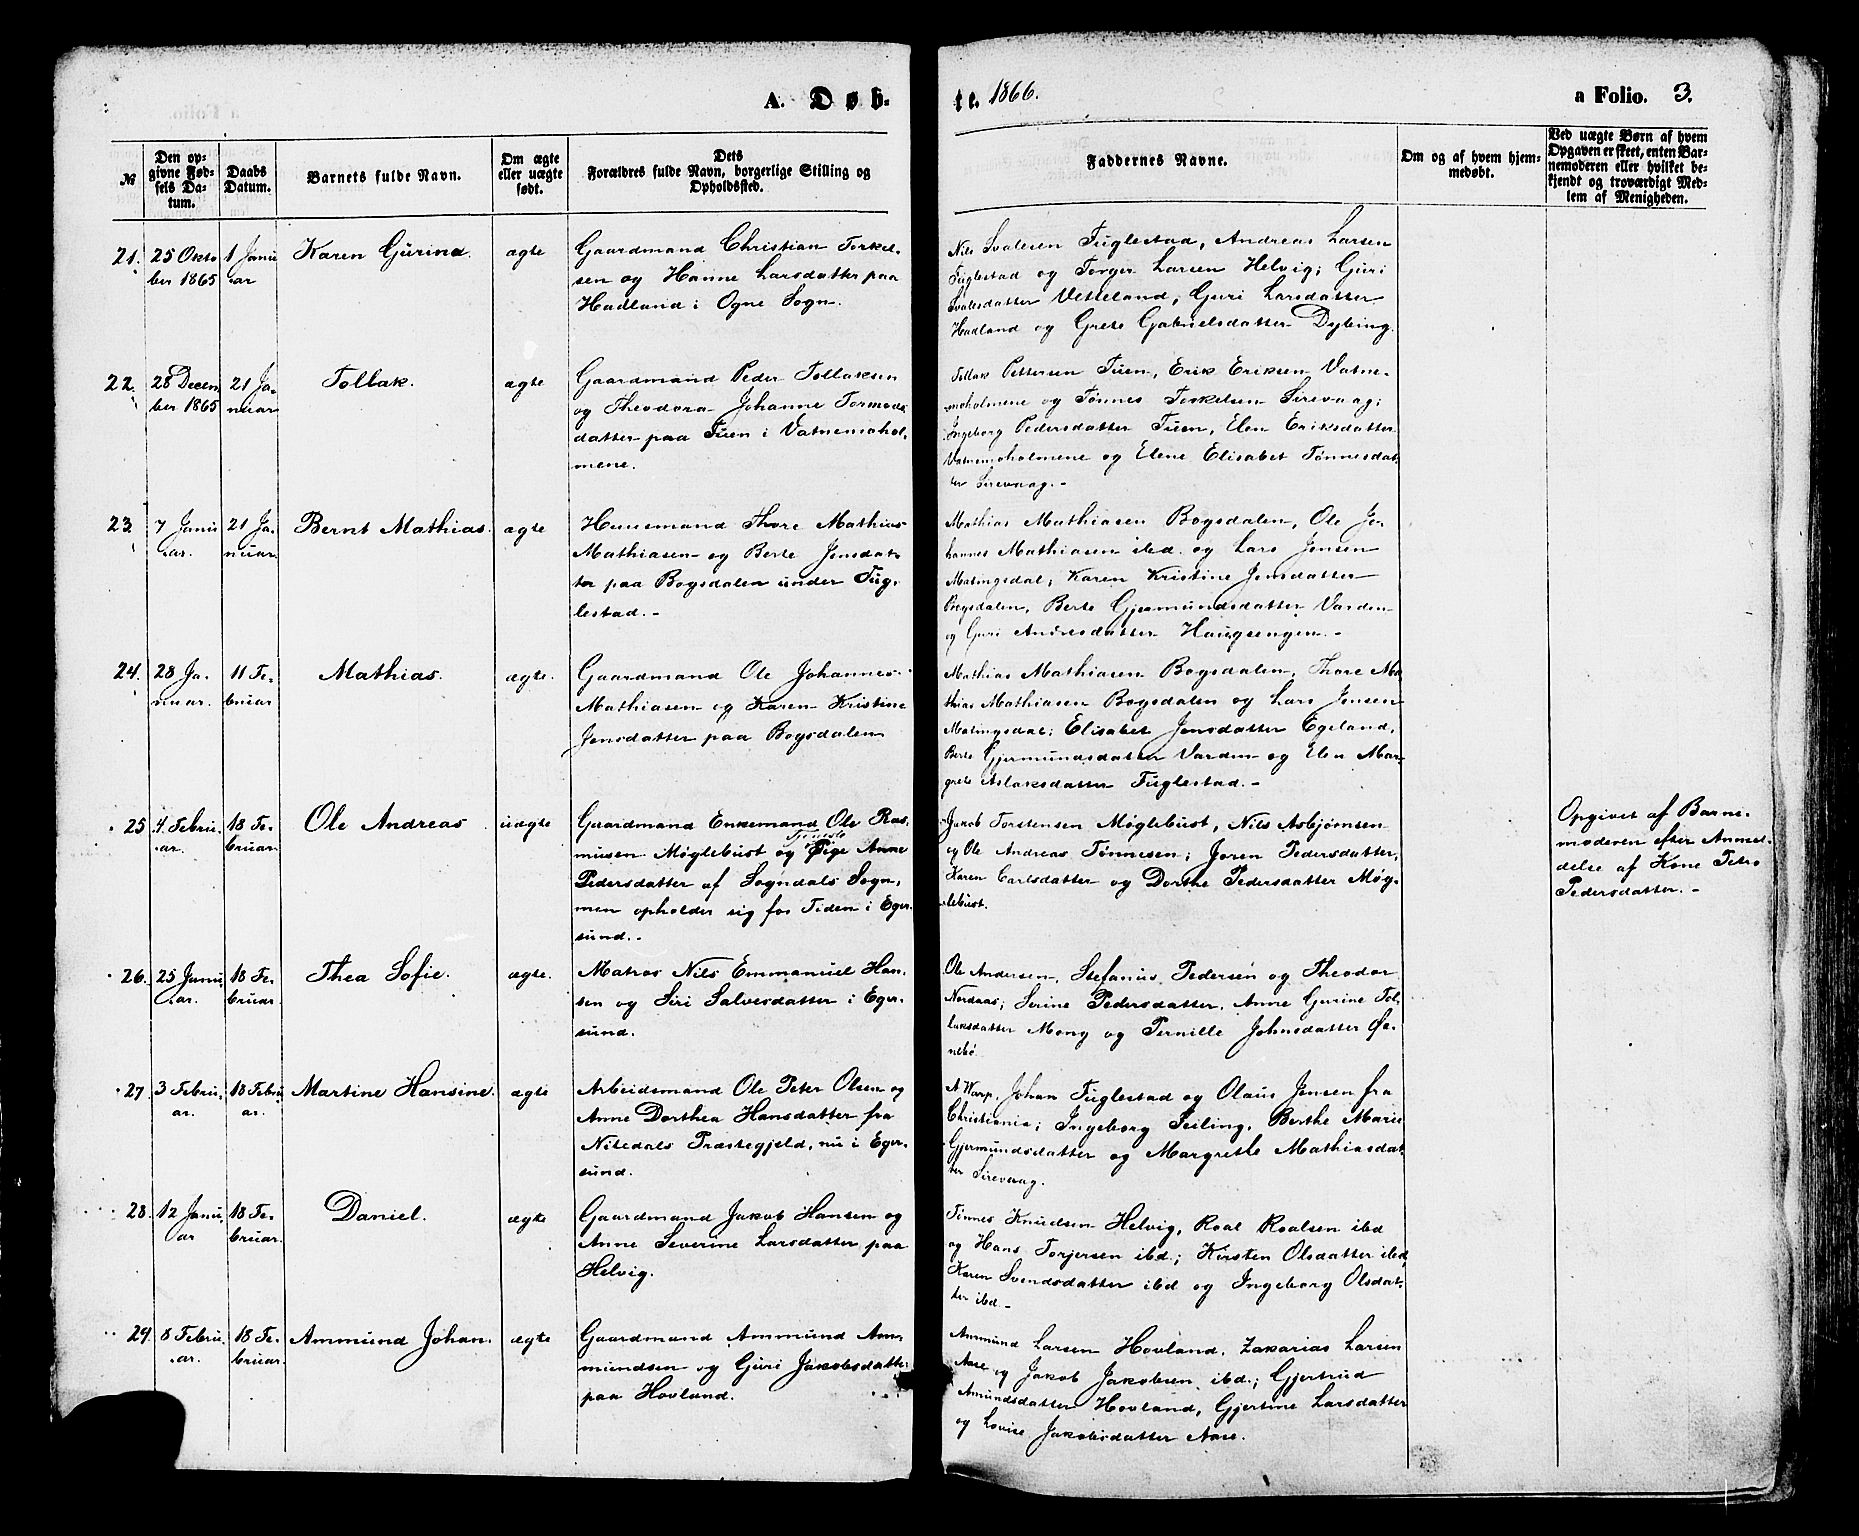 A. Døb-
te. 1866.
a Folio. 3.
№
Den op-
givne Fød-
sels Da-
tum.
Daabs
Datum.
Barnets fulde Navn.
Om ægte
eller uægte
født.
Dets
Forældres fulde Navn, borgerlige Stilling og
Opholdssted.
Faddernes Navne.
Om og af hvem hjem-
medøbt.
Ved uægte Børn af hvem
Opgaven er skeet, enten Bar-
nemoderen eller hvilket be-
kjendt og troværdigt Med-
lem af Menigheden.
21.
25 Okto
ber 1865
1 Janu
ar
Karen Gurine.
ægte
Gaardmand Christian Torkel-
sen og Hanne Larsdatter paa
Hadland i Ogne Sogn.
Nils Svalesen Fuglestad, Andreas Larsen
Fuglestad og Torger Larsen Helvig; Guri
Svalesdatter Vetteland, Guri Larsdatter
Hadland og Grete Gabrielsdatter Dybing.
22.
28 Decem
ber 1865
21 Ja-
nuar
Tollak.
ægte
Gaardmand Peder Tollaksen
og Theodora Johanne Tormods
datter paa Tuen i Vatnemohol-
mene.
Tollak Pettersen Tuen, Erik Eriksen Vatne-
moholmene og Tønnes Terkelsen Sirevaag;
Ingeborg Pedersdatter Tuen, Elen Eriksdatter
Vatnemoholmene og Elene Elisabet Tønnesdat-
ter Sirevaag.-
23
7 Janu
ar.
21 Ja-
nuar
Bernt Mathias.
ægte
Huusmand Thore Mathias
Mathiasen og Berte Jensdat-
ter paa Bogsdalen under Fug-
lestad.-
Mathias Mathiasen Bogsdalen, Ole Jo-
hannes Mathiasen ibd. og Lars Jensen
Matingsdal; Karen Kristine Jensdatter
Bogsdalen, Berte Gjermundsdatter Varden
og Guri Andresdatter Haugsengen.-
24.
28 Ja-
nuar.
11 Fe-
bruar
Mathias.
ægte.
Gaardmand Ole Johannes
Mathiasen og Karen Kristine
Jensdatter paa Bogsdalen
Mathias Mathiasen Bogsdalen, Thore Ma
thias Mathiasen Bogsdalen og Lars Jensen
Matingsdal; Elisabet Jensdatter Egeland,
Berte Gjermundsdatter Varden og Elen Mar-
grete Aslaksdatter Fuglestad.-
25
4 Febru-
ar.
18 Fe-
bruar
Ole Andreas
uægte
Gaardmand Enkemand Ole Ras-
musen Møglebust og Tjeneste
Pige Anne
Pedersdatter af Sogndals Sogn,
men opholder sig for Tiden i Eger-
sund.-
Jakob Torstensen Møglebust, Nils Asbjørnsen
og Ole Andreas Tønnesen; Joren Pedersdatter,
Karen Carlsdatter og Dorthe Pedersdatter Møg-
lebust.
Opgivet af Barne-
moderen efter Anmel-
delse af Kone Petra
Pedersdatter.-
26.
25 Janu
ar.
18 Fe-
bruar.
Thea Sofie.
ægte.
Matros Nils Emmanuel Han-
sen og Siri Salvesdatter i Eger-
sund.
Ole Andersen, Stefanus Pedersen og Theodor
Nordaas; Serine Pedersdatter, Anne Gurine Tol-
laksdatter Mong og Pernille Johnsdatter Øe-
nebø.
27.
3 Febru-
ar.
18 Febru
ar.
Martine Hansine.
ægte
Arbeidsmand Ole Peter Olsen og
Anne Dorthea Hansdatter fra
Nitedals Præstegjeld, nu i Eger-
sund.
A. Warp, Johan Fuglestad og Olaus Jensen fra
Christiania; Ingeborg Seiling, Berthe Marie
Gjermundsdatter og Margrethe Mathiasdat-
ter Sirevaag.
28.
12 Janu
ar
18 Fe-
bruar.
Daniel.
ægte
Gaardmand Jakob Hansen og
Anne Severine Larsdatter paa
Helvig.
Tønnes Knudsen Helvig, Roal Roalsen ibd
og Hans Torjersen ibd.; Kirsten Olsdatter ibd,
Karen Svendsdatter ibd og Ingeborg Olsdat-
ter ibd.-
29.
8 Febru
ar.
18 Fe-
bruar.
Ammund Johan.
ægte
Gaardmand Ammund Am-
mundsen og Guri Jakobsdatter
paa Hovland.
Ammund Larsen Hovland, Zakarias Larsen
Aase og Jakob Jakobsen ibd.; Gjertrud
Amundsdatter Hovland, Gjertine Larsdatter
og Lovise Jakobsdatter Aase.